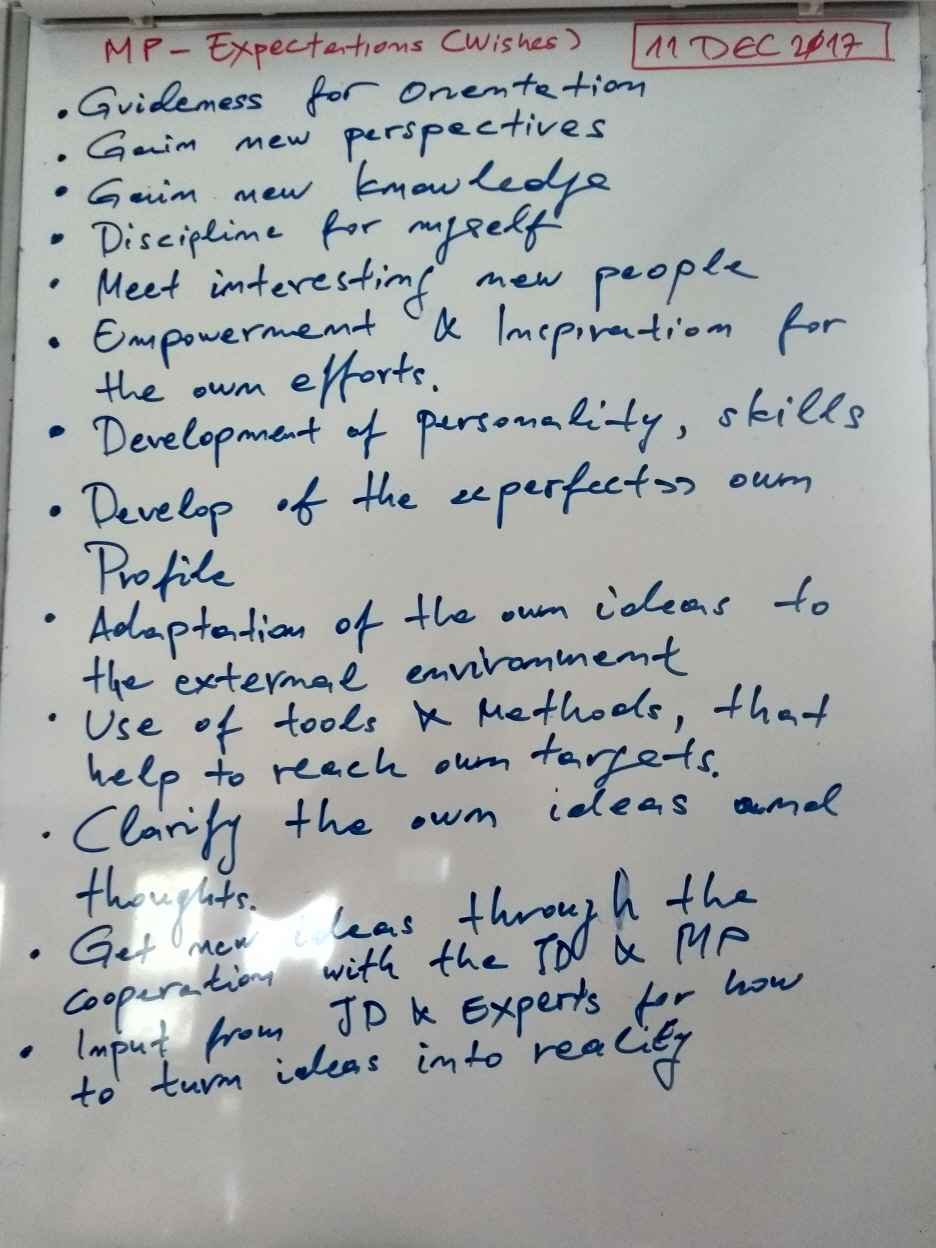 MP - Expectations (Wishes) 11 DEC 2017
• Guideness for Orientation
• Gain new perspectives
• Gain new knowledge
• Discipline for myself
• Meet interesting new people
• Empowerment & Inspiration for
the own efforts.
• Development of personality, skills
• Develop of the «perfect» own
Profile
• Adaptation of the own ideas to
the external environment
• Use of tools & Methods, that
help to reach own targets.
• Clarify the own ideas and
thoughts.
• Get new ideas through the
cooperation with the JD & MP
• Input from JD & Experts for how
to turn ideas into reality